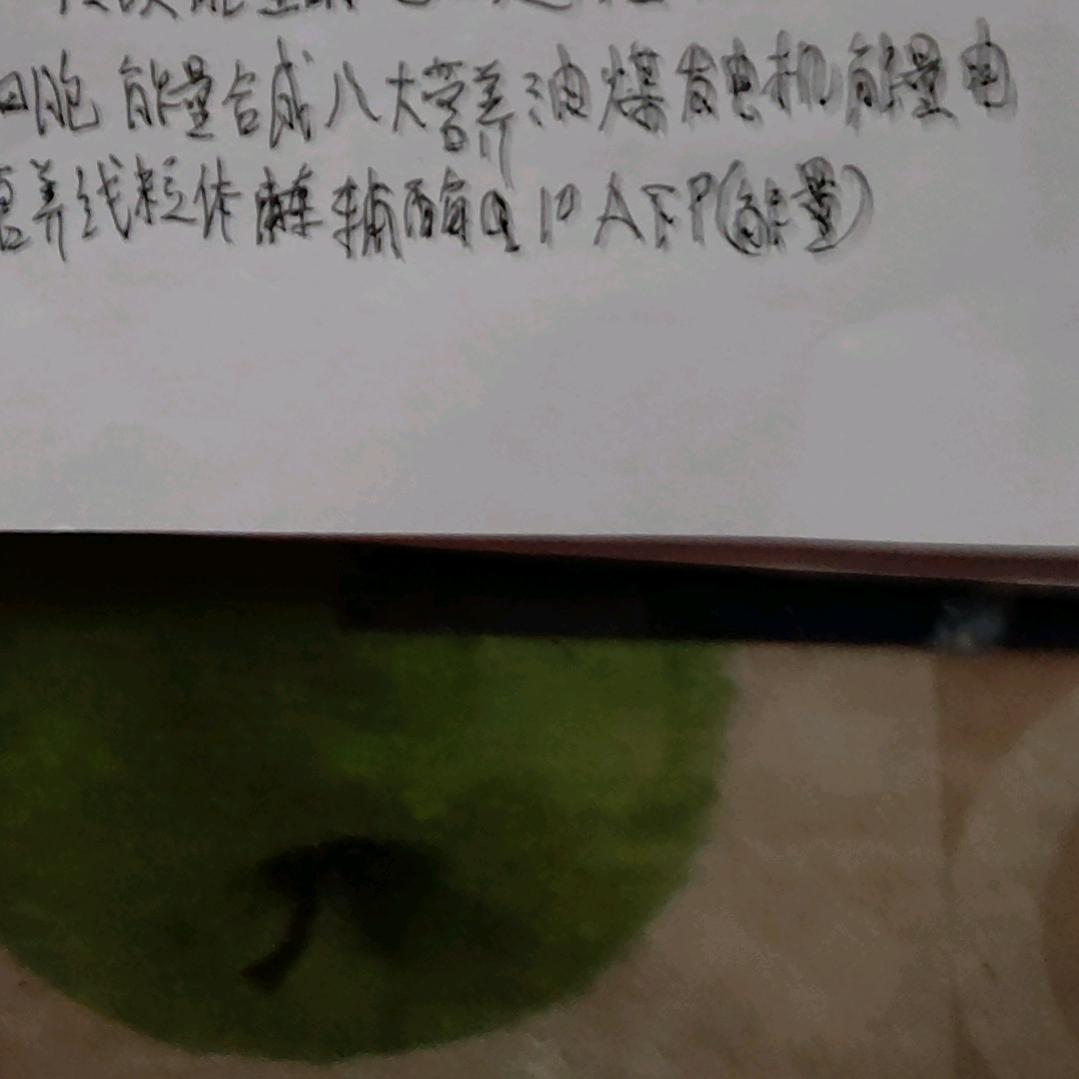 细胞 能量合成八大营养油煤发电机能量电
营养线粒体 辅酶Q10 AFP(能量)